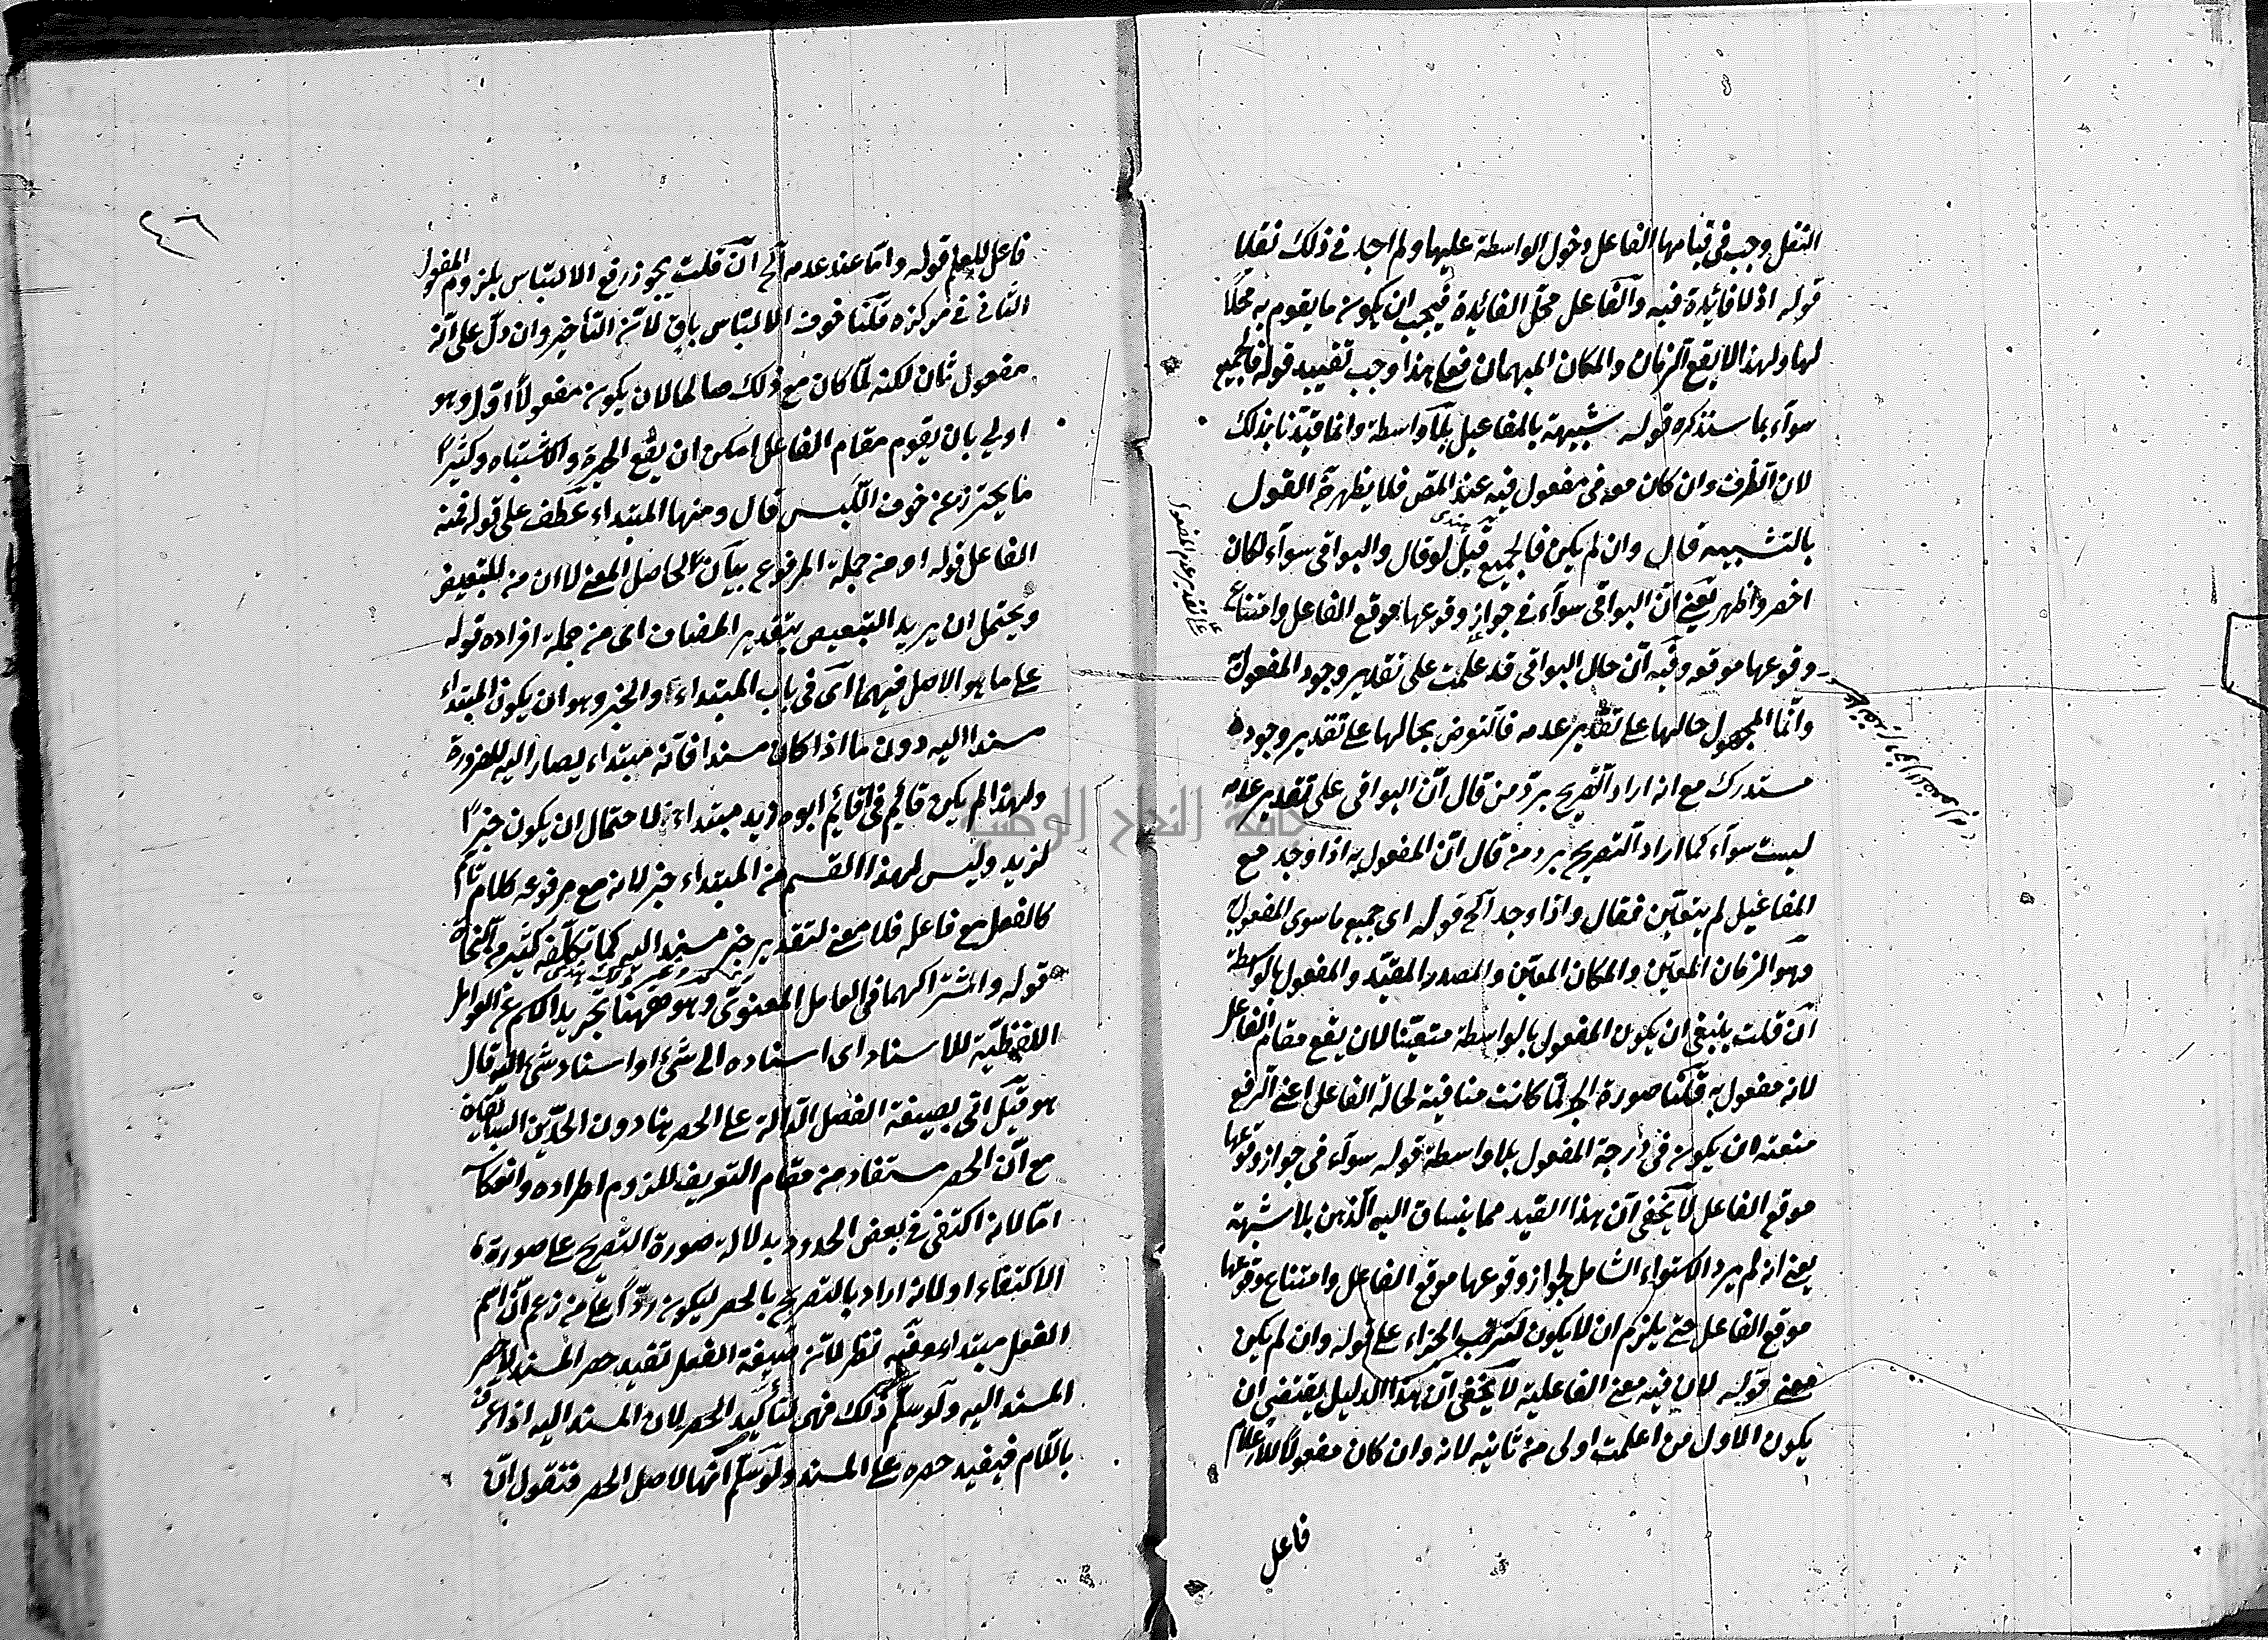 النقل وجب في قيامها الفاعل دخول الواسطة عليها ولم اجد في ذلك نقلا
قوله اذ لا فائدة فيه والفاعل محل الفائدة فيجب ان يكون ما يقوم به محلا
لها ولهذا لا يقع الزمان والمكان المبهمان فعلى هذا وجب تقييد قوله فالجميع
سواء بما سنذكره قوله شبيهة بالمفاعيل بلا واسطة وانما قيدنا بذلك
لان الظرف وان كان معه في مفعول فيه عند المص فلا يظهر ح القول
بالتشبيه قال وان لم يكن فالجميع قيل لو قال والبواقي سواء لكان
هندى
اخصر واظهر يعني ان البواقي سواء في جواز وقوعها موقع الفاعل وامتناع
على تقدير عدم المفعول
وقوعها موقعه وفيه ان حال البواقي قد علمت على تقدير وجود المفعول به
وانما المجهول حالها على تقدير عدمه فالتعرض بحالها على تقدير وجوده
مستدرك مع انه اراد التصريح برد من قال ان البواقي على تقدير عدمه
ليست سواء كما اراد التصريح برد من قال ان المفعول به اذا وجد مع
المفاعيل لم يتعين فقال واذا وجد الخ قوله اي جميع ما سوى المفعول به
وهو الزمان المعين والمكان المعين والمصدر المقيد والمفعول بالواسطة
ان قلت ينبغي ان يكون المفعول بالواسطة متعينا لان يقع مقام الفاعل
لانه مفعول به قلنا صورة الجر لما كانت منافية لحالة الفاعل اعني الرفع
منعته ان يكون في درجة المفعول بلا واسطة قوله سواء في جواز وقوعها
موقع الفاعل لا يخفى ان هذا القيد مما ينساق اليه الذهن بلا شبهة
يعني انه لم يرد الاستواء الشامل لجواز وقوعها موقع الفاعل وامتناع وقوعها
موقع الفاعل حتى يلزم ان لا يكون لترتب الجزاء على قوله وان لم يكن
معنى قوله لان فيه معنى الفاعلية لا يخفى ان هذا الدليل يقتضي ان
يكون الاول من اعلمت اولى من ثانيه لانه وان كان مفعولا للاعلام
فاعل
٤٦
فاعل للعلم قوله واما عند عدمه الخ ان قلت يجوز رفع الالتباس بلزوم المفعول
الثاني في مركزه قلنا خوف الالتباس باق لان التأخير وان دل على انه
مفعول ثان لكنه لما كان مع ذلك صالحا لان يكون مفعولا اول وهو
اولى بان يقوم مقام الفاعل امكن ان يقع الحيرة والاشتباه وكثيرا
ما يحترز عن خوف اللبس قال ومنها المبتداء عطف على قوله فمنه
الفاعل قوله او من جملة المرفوع بيان لحاصل المعنى لا ان من للتبعيض
ويحتمل ان يريد التبعيض بتقدير المضاف اي من جملة افراده قوله
على ما هو الاصل فيهما اي في باب المبتداء والخبر وهو ان يكون المبتداء
مسندا اليه دون ما اذا كان مسندا فانه مبتداء يصار اليه للضرورة
ولهذا لم يكن قائم في اقائم ابوه زيد مبتداء لاحتمال ان يكون خبرا
لزيد وليس لهذا القسم من المبتداء خبر لانه مع مرفوعه كلام تام
كالفعل مع فاعله فلا معنى لتقدير خبر مسند اليه كما تكلفه كثير من النحاة
قوله واشتراكهما في العامل المعنوي وهو ههنا تجريد الاسم عن العوامل
اللفظية للاسناد اي اسناده الى شئ او اسناد شئ اليه قال
هو قيل اتى بصيغة الفصل الدالة على الحصر هنا دون الحدين السابقين
مع ان الحصر مستفاد من مقام التعريف للزوم اطراده وانعكاسه
اما لانه اكتفى في بعض الحدود بدلالة صورة التصريح على صورة
الاكتفاء او لانه اراد بالتصريح بالحصر ليكون ردا على من زعم ان اسم
الفعل مبتداء وفيه نظر لان صيغة الفصل تفيد حصر المسند لا حصر
المسند اليه ولو سلم ذلك فهي لتأكيد الحصر لان المسند اليه اذا عرف
باللام فيفيد حصره على المسند ولو سلم انها لاصل الحصر فنقول ان
جامعة النجاح الوطنية